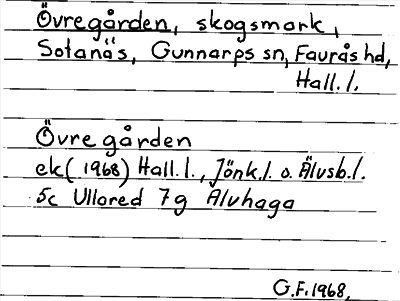 Övregården, skogsmark,
Sotanäs, Gunnarps sn, Faurås hd,
Hall. l.
Övre gården
ek (1968) Hall. l., Jönk. l. o. Älvsb. l.
5c Ullared 7g Alvhaga
G.F. 1968.